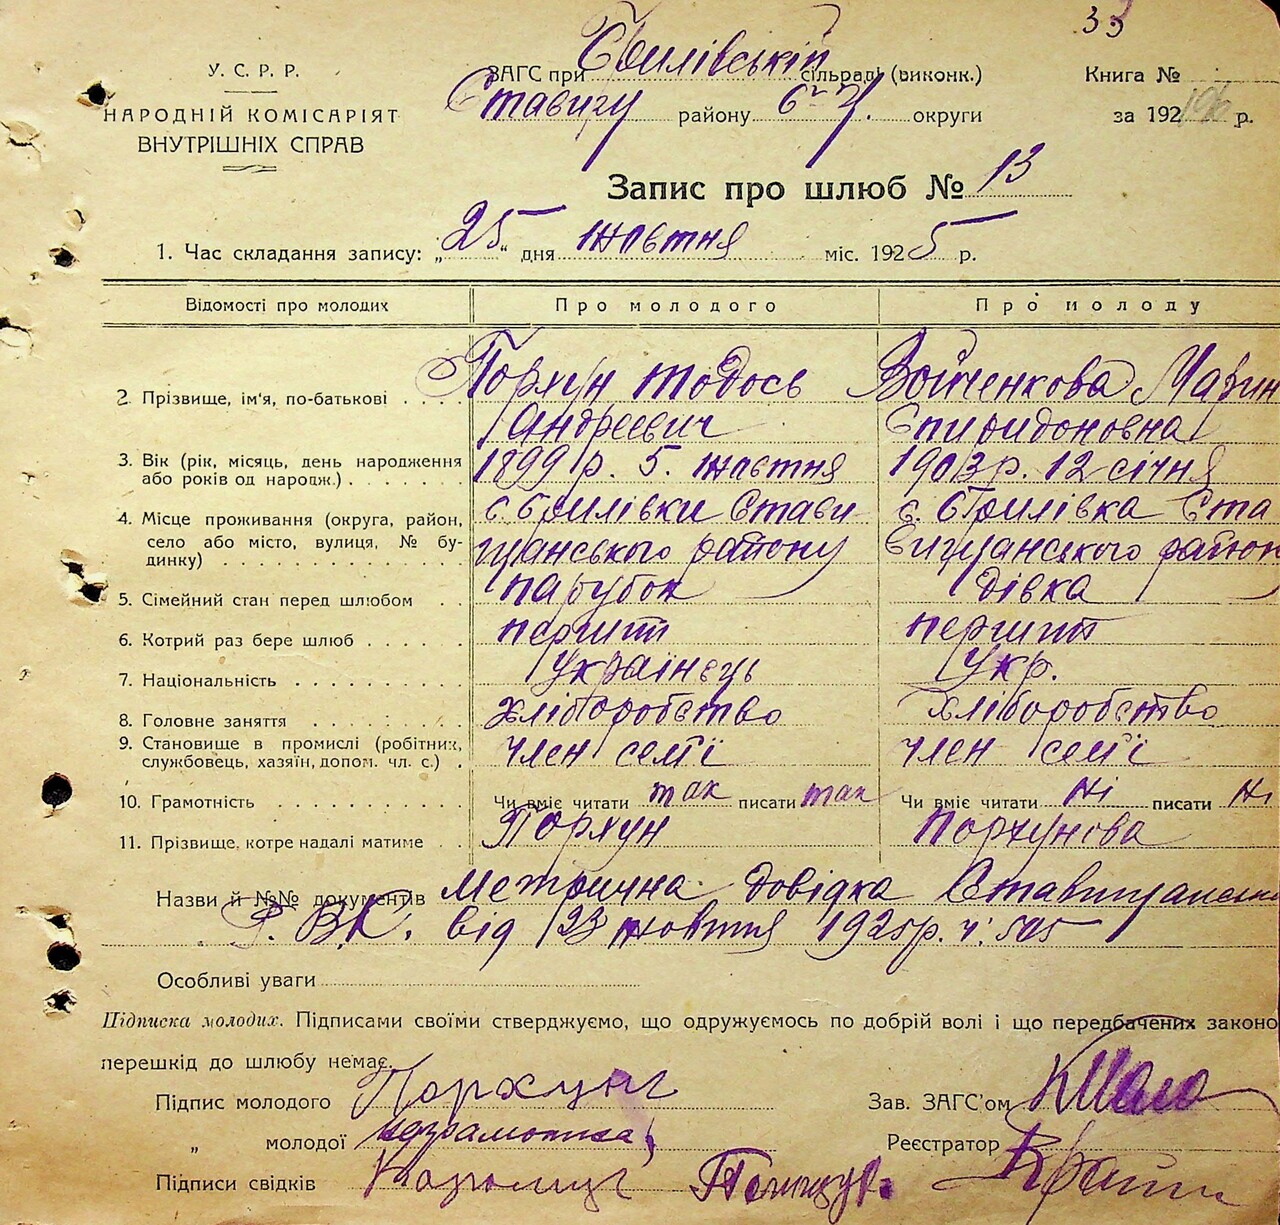 33
У. С. Р. Р.
НАРОДНІЙ КОМІСАРІЯТ
ВНУТРІШНІХ СПРАВ
ЗАГС при сільраді (виконк.)
району округи
Книга №
за 192 р.
Запис про шлюб № 13
1. Час складання запису: „25" дня жовтня міс. 1925 р.
Відомості про молодих Про молодого Про молоду
2. Прізвище, ім'я, по-батькові . . . . Порхун Тодось Войченкова Марин
Андреевич Спиридоновна
3. Вік (рік, місяць, день народження 1899 р. 5. жовтня 1903 р. 12 січня
або років од народж.) . . . . . . .
4. Місце проживання (округа, район, с. Брилівки Стави с. Брилівка Ста
село або місто, вулиця, № бу- щанського району вищанського район
динку) . . . . . . . . . . . . . .
5. Сімейний стан перед шлюбом . . парубок дівка
6. Котрий раз бере шлюб . . . . . . перший перший
7. Національність . . . . . . . . . . Українець Укр.
8. Головне заняття . . . . . . . . хліборобство хліборобство
9. Становище в промислі (робітник, член семї член семї
службовець, хазяїн, допом. чл. с.) .
10. Грамотність . . . . . . . . . . . Чи вміє читати так писати так Чи вміє читати Ні писати Ні
11. Прізвище, котре надалі матиме . . Порхун Порхунова
Назви й №№ документів Метрична довідка
Р.В.К. від 23 жовтня 1925 р. ч: 505
Особливі уваги
Підписка молодих. Підписами своїми стверджуємо, що одружуємось по добрій волі і що передбачених законо
перешкід до шлюбу немає.
Підпис молодого Порхун
Зав. ЗАГС'ом
„ молодої неграмотна
Реєстратор
Підписи свідків